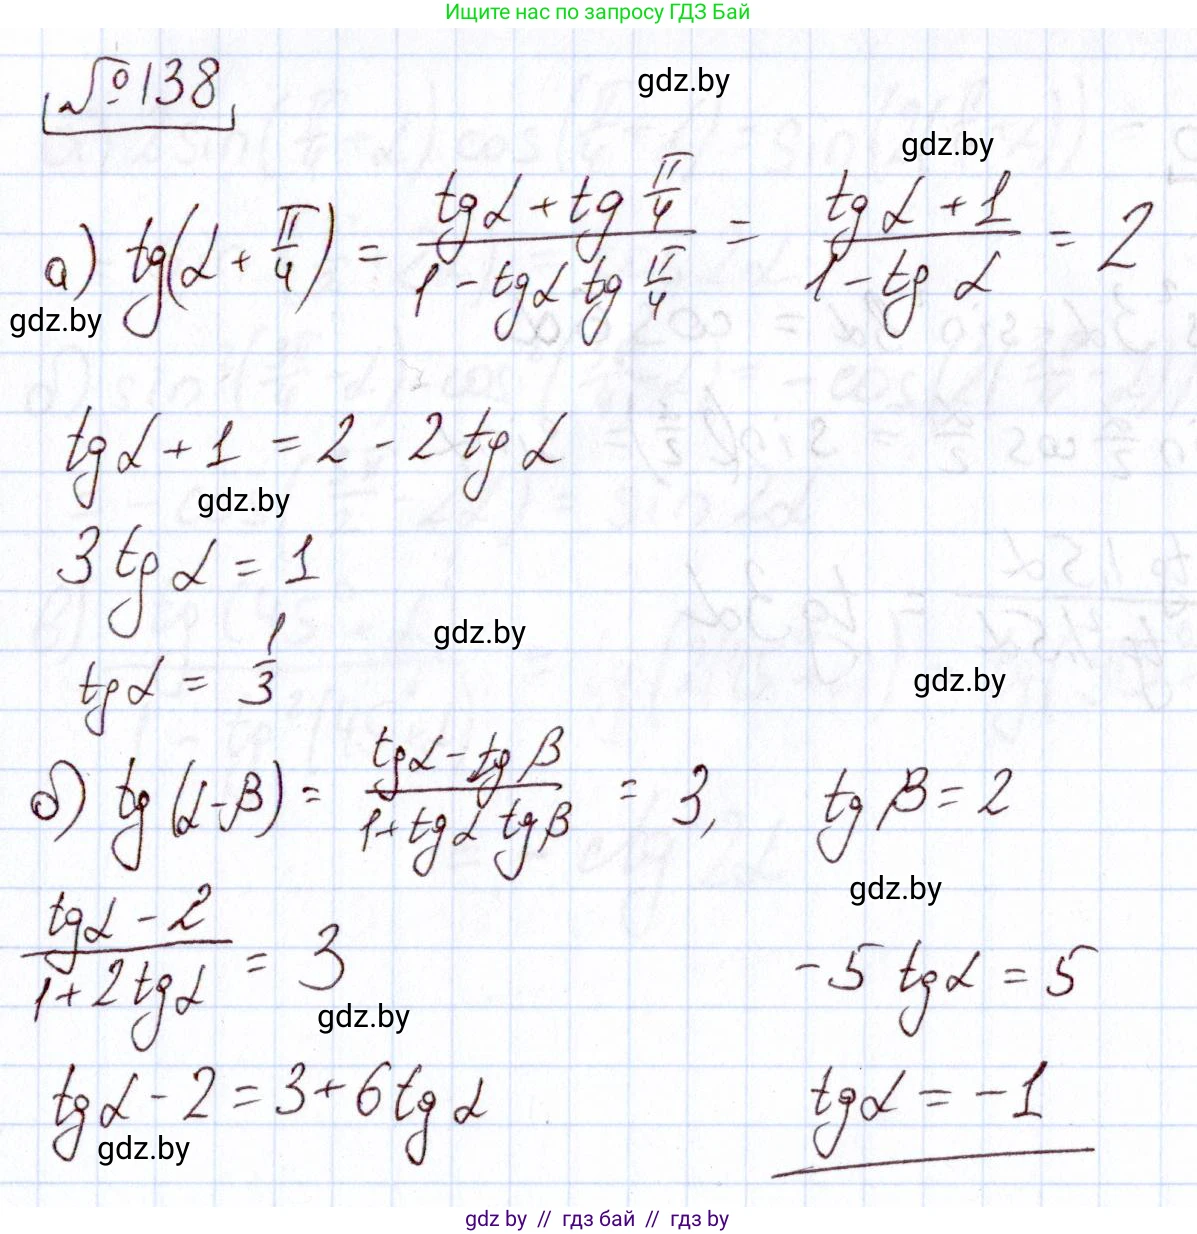 Ищите нас по запросу ГДЗ Бай
№138
gdz.by
gdz.by
а) tg(α + π/4) = (tgα + tg π/4)/(1 - tgα tg π/4) = (tg α + 1)/(1 - tg α) = 2
gdz.by
tgα + 1 = 2 - 2 tg α
gdz.by
3 tg α = 1
gdz.by
tgα = 1/3
gdz.by
б) tg (α - β) = (tgα - tg β)/(1 + tgα tgβ) = 3, tg β = 2
gdz.by
(tgα - 2)/(1 + 2 tgα) = 3
-5 tgα = 5
gdz.by
tgα - 2 = 3 + 6 tg α
tgα = -1
gdz.by
gdz by // гдз бай // гдз by